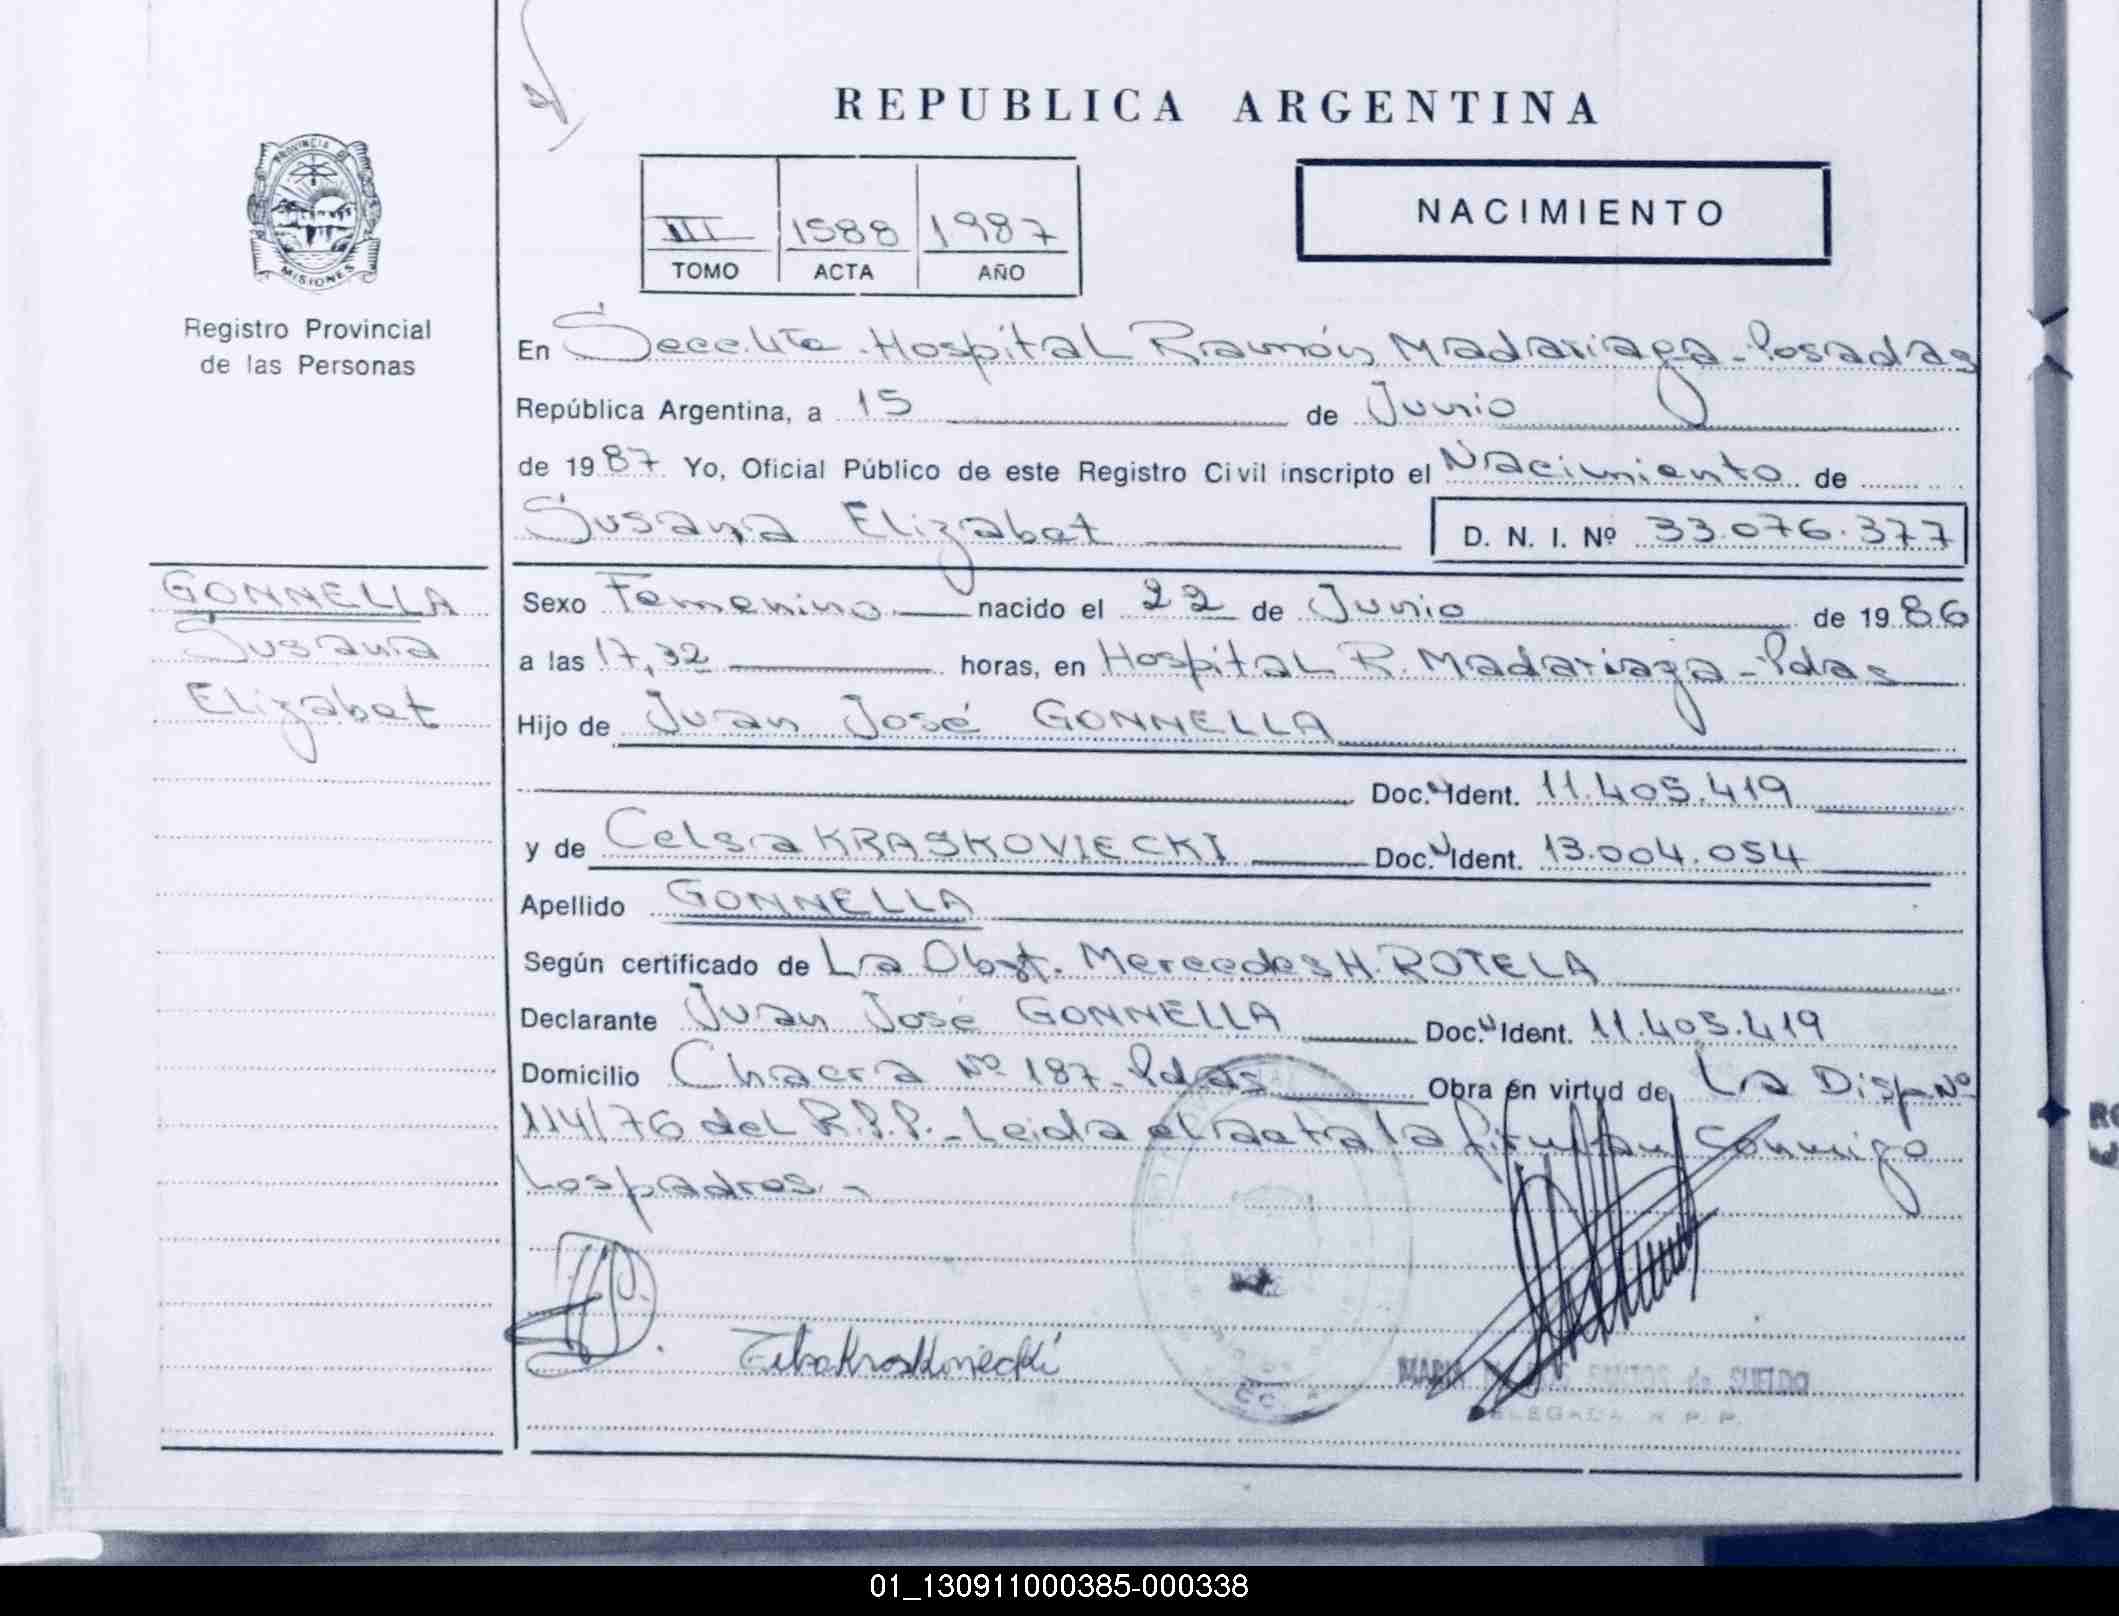 REPUBLICA ARGENTINA
PROVINCIA DE
MISIONES
Registro Provincial
de las Personas
III 1588 1987
TOMO ACTA AÑO
NACIMIENTO
En Secc. 4ta. Hospital Ramón Madariaga - Posadas
República Argentina, a 15 de Junio
de 1987. Yo, Oficial Público de este Registro Civil inscripto el Nacimiento de
Susana Elizabet D. N. I. Nº 33.076.377
GONNELLA
Susana
Elizabet
Sexo Femenino nacido el 22 de Junio de 1986
a las 17,32 horas, en Hospital R. Madariaga - Pdas
Hijo de Juan José GONNELLA
Doc. Ident. 11.405.419
y de Celsa KRASKOVIECKI Doc. Ident. 13.004.054
Apellido GONNELLA
Según certificado de La Obst. Mercedes H. ROTELA
Declarante Juan José GONNELLA Doc. Ident. 11.405.419
Domicilio Chacra Nº 187 - Pdas Obra en virtud de La Disp Nº
114/76 del R.P.P. - Leida el acta la firman conmigo
Los padres. -
DELEGADA R. P. P.
01_130911000385-000338